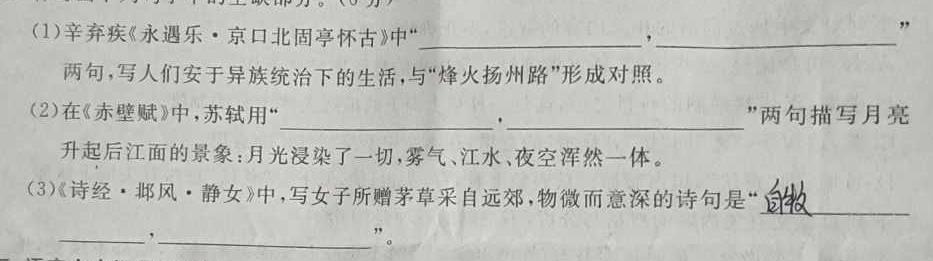 (1)辛弃疾《永遇乐·京口北固亭怀古》中“____________,____________”
两句,写人们安于异族统治下的生活,与“烽火扬州路”形成对照。
(2)在《赤壁赋》中,苏轼用“____________,____________”两句描写月亮
升起后江面的景象:月光浸染了一切,雾气、江水、夜空浑然一体。
(3)《诗经·邶风·静女》中,写女子所赠茅草采自远郊,物微而意深的诗句是“自牧______
______,____________”。